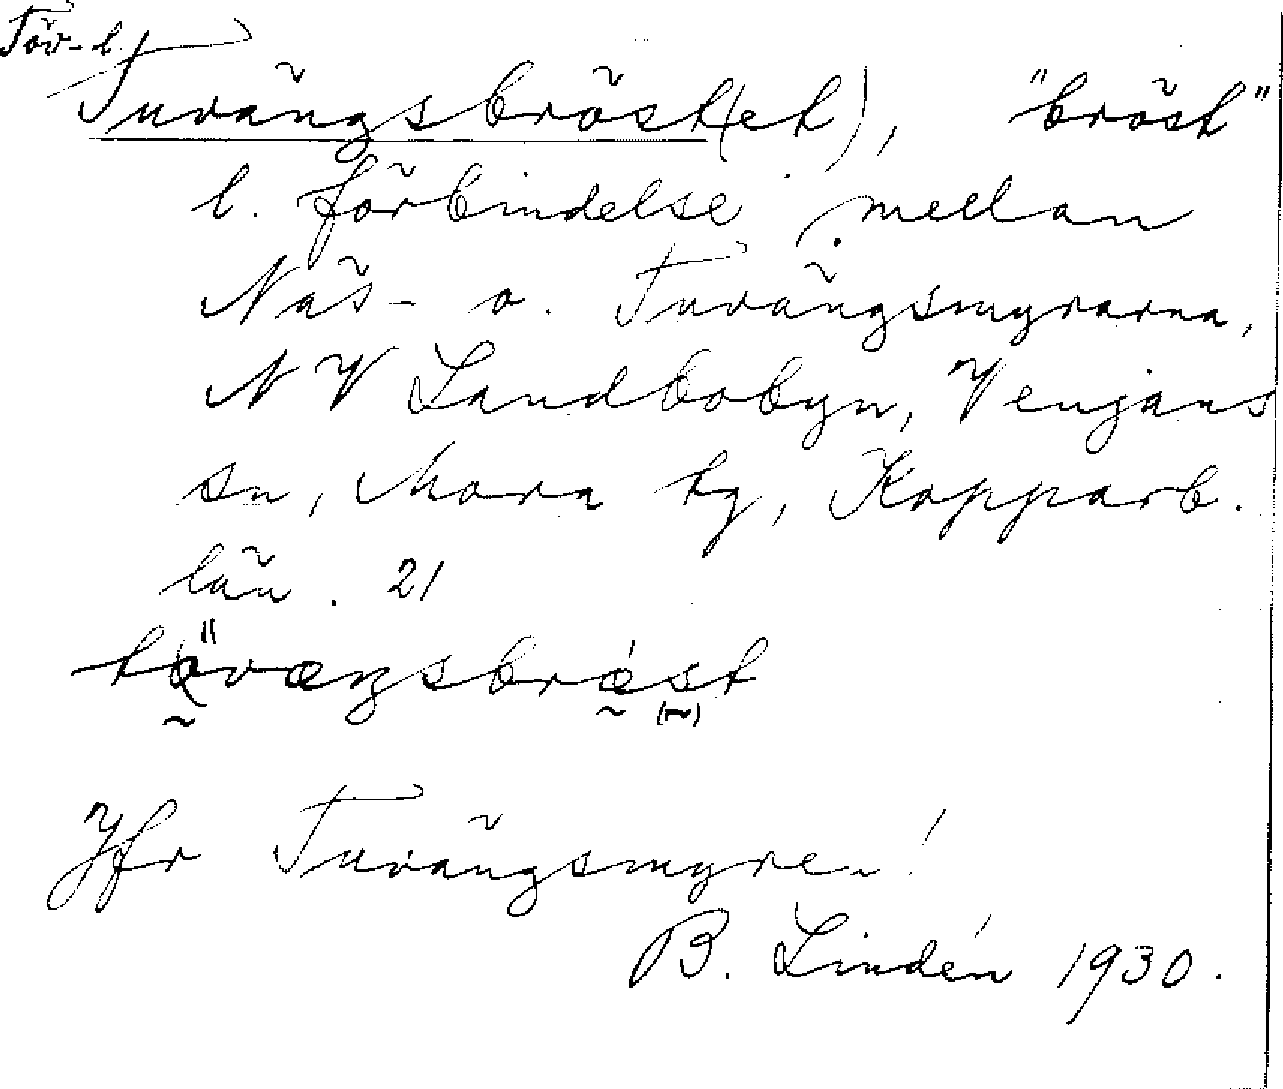 Töv- l.
Tuvängsbröst(et), "bröst"
l. förbindelse mellan
Näs- o. Tuvängsmyrarna,
NV Landbobyn, Venjans
sn, Mora tg, Kopparb.
län. 21
Jfr Tuvängsmyren!
B. Lindén 1930.